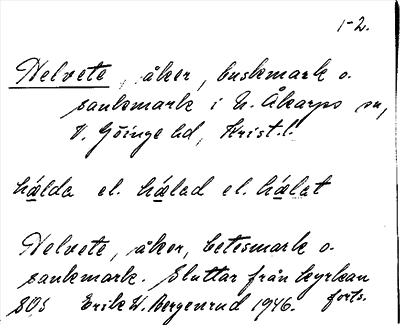 1-2.
Helvete, åker, buskmark o.
sankmark i N. Åkarps sn,
V. Göinge hd, Krist. l.
hælda el. hælad el. hælat
Helvete, åker, betesmark o.
sankmark. Sluttar från kyrkan
SOS Erik W. Bergenrud 1946. forts.